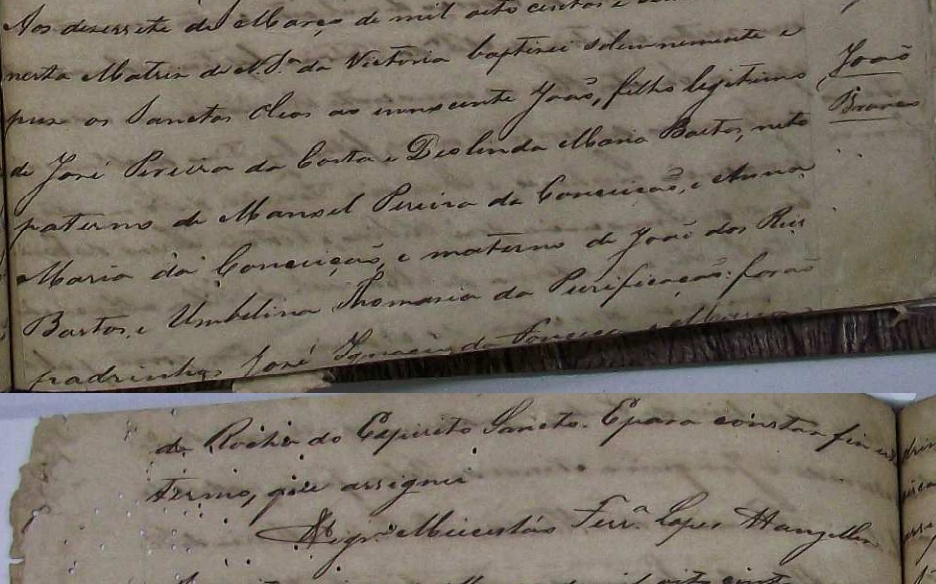 Aos desessete de Março de mil oito centos e
nesta Matriz de N. Sª da Victoria baptisei solemnemente e
puz os Sanctos Oleos ao innocente João, filho legitimo
João
Branco
de José Pereira da Costa e Deolinda Maria Bastos, neto
paterno de Manoel Pereira da Conceição, e Anna
Maria da Conceição, e materno de João dos Reis
Bastos, e Umbelina Thomasia da Purificação: forão
padrinhos José Ignacio da Fonseca e Maria
da Rocha do Espirito Sancto. E para constar fiz este
termo, que assignei
Ferrª Lopes